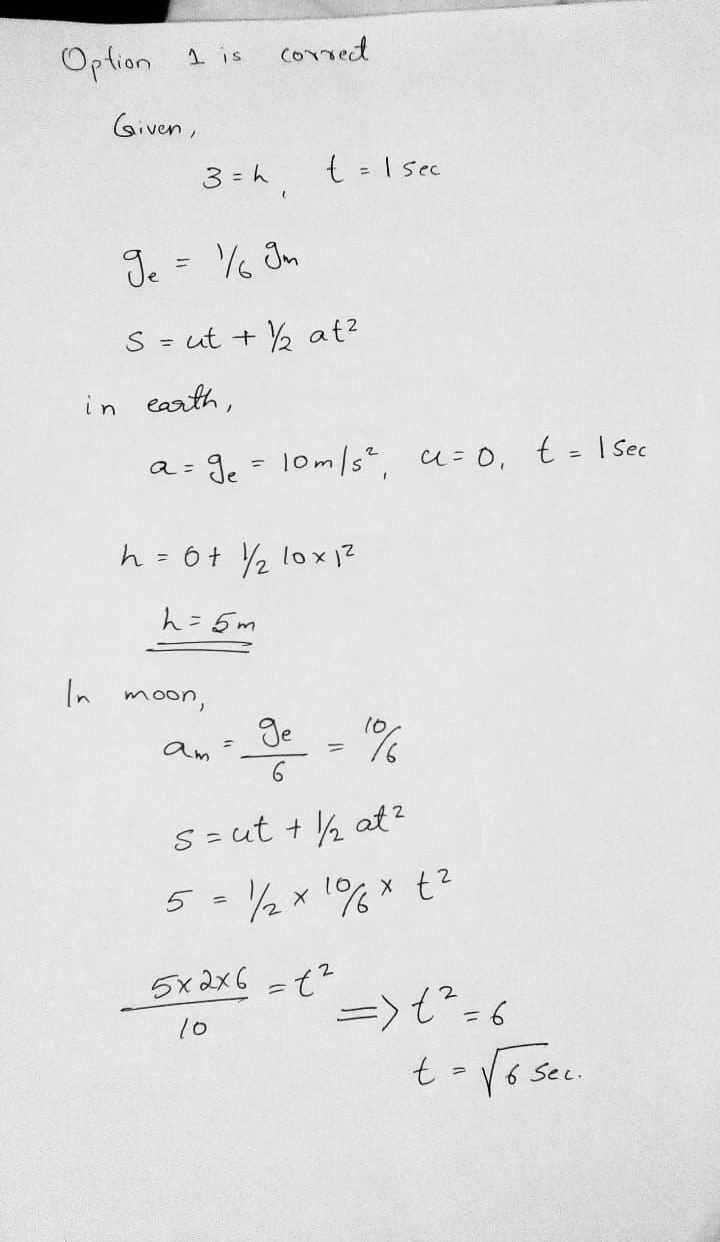 Option 1 is correct
Given,
3 = h, t = 1 sec
gₑ = 1/6 gₘ
S = ut + 1/2 at²
in earth,
a = gₑ = 10m/s², u = 0, t = 1 Sec
h = 0 + 1/2 10 x 1²
h = 5m
In moon,
aₘ = gₑ/6 = 10/6
S = ut + 1/2 at²
5 = 1/2 x 10/6 x t²
5x2x6/10 = t² => t² = 6
t = √6 Sec.